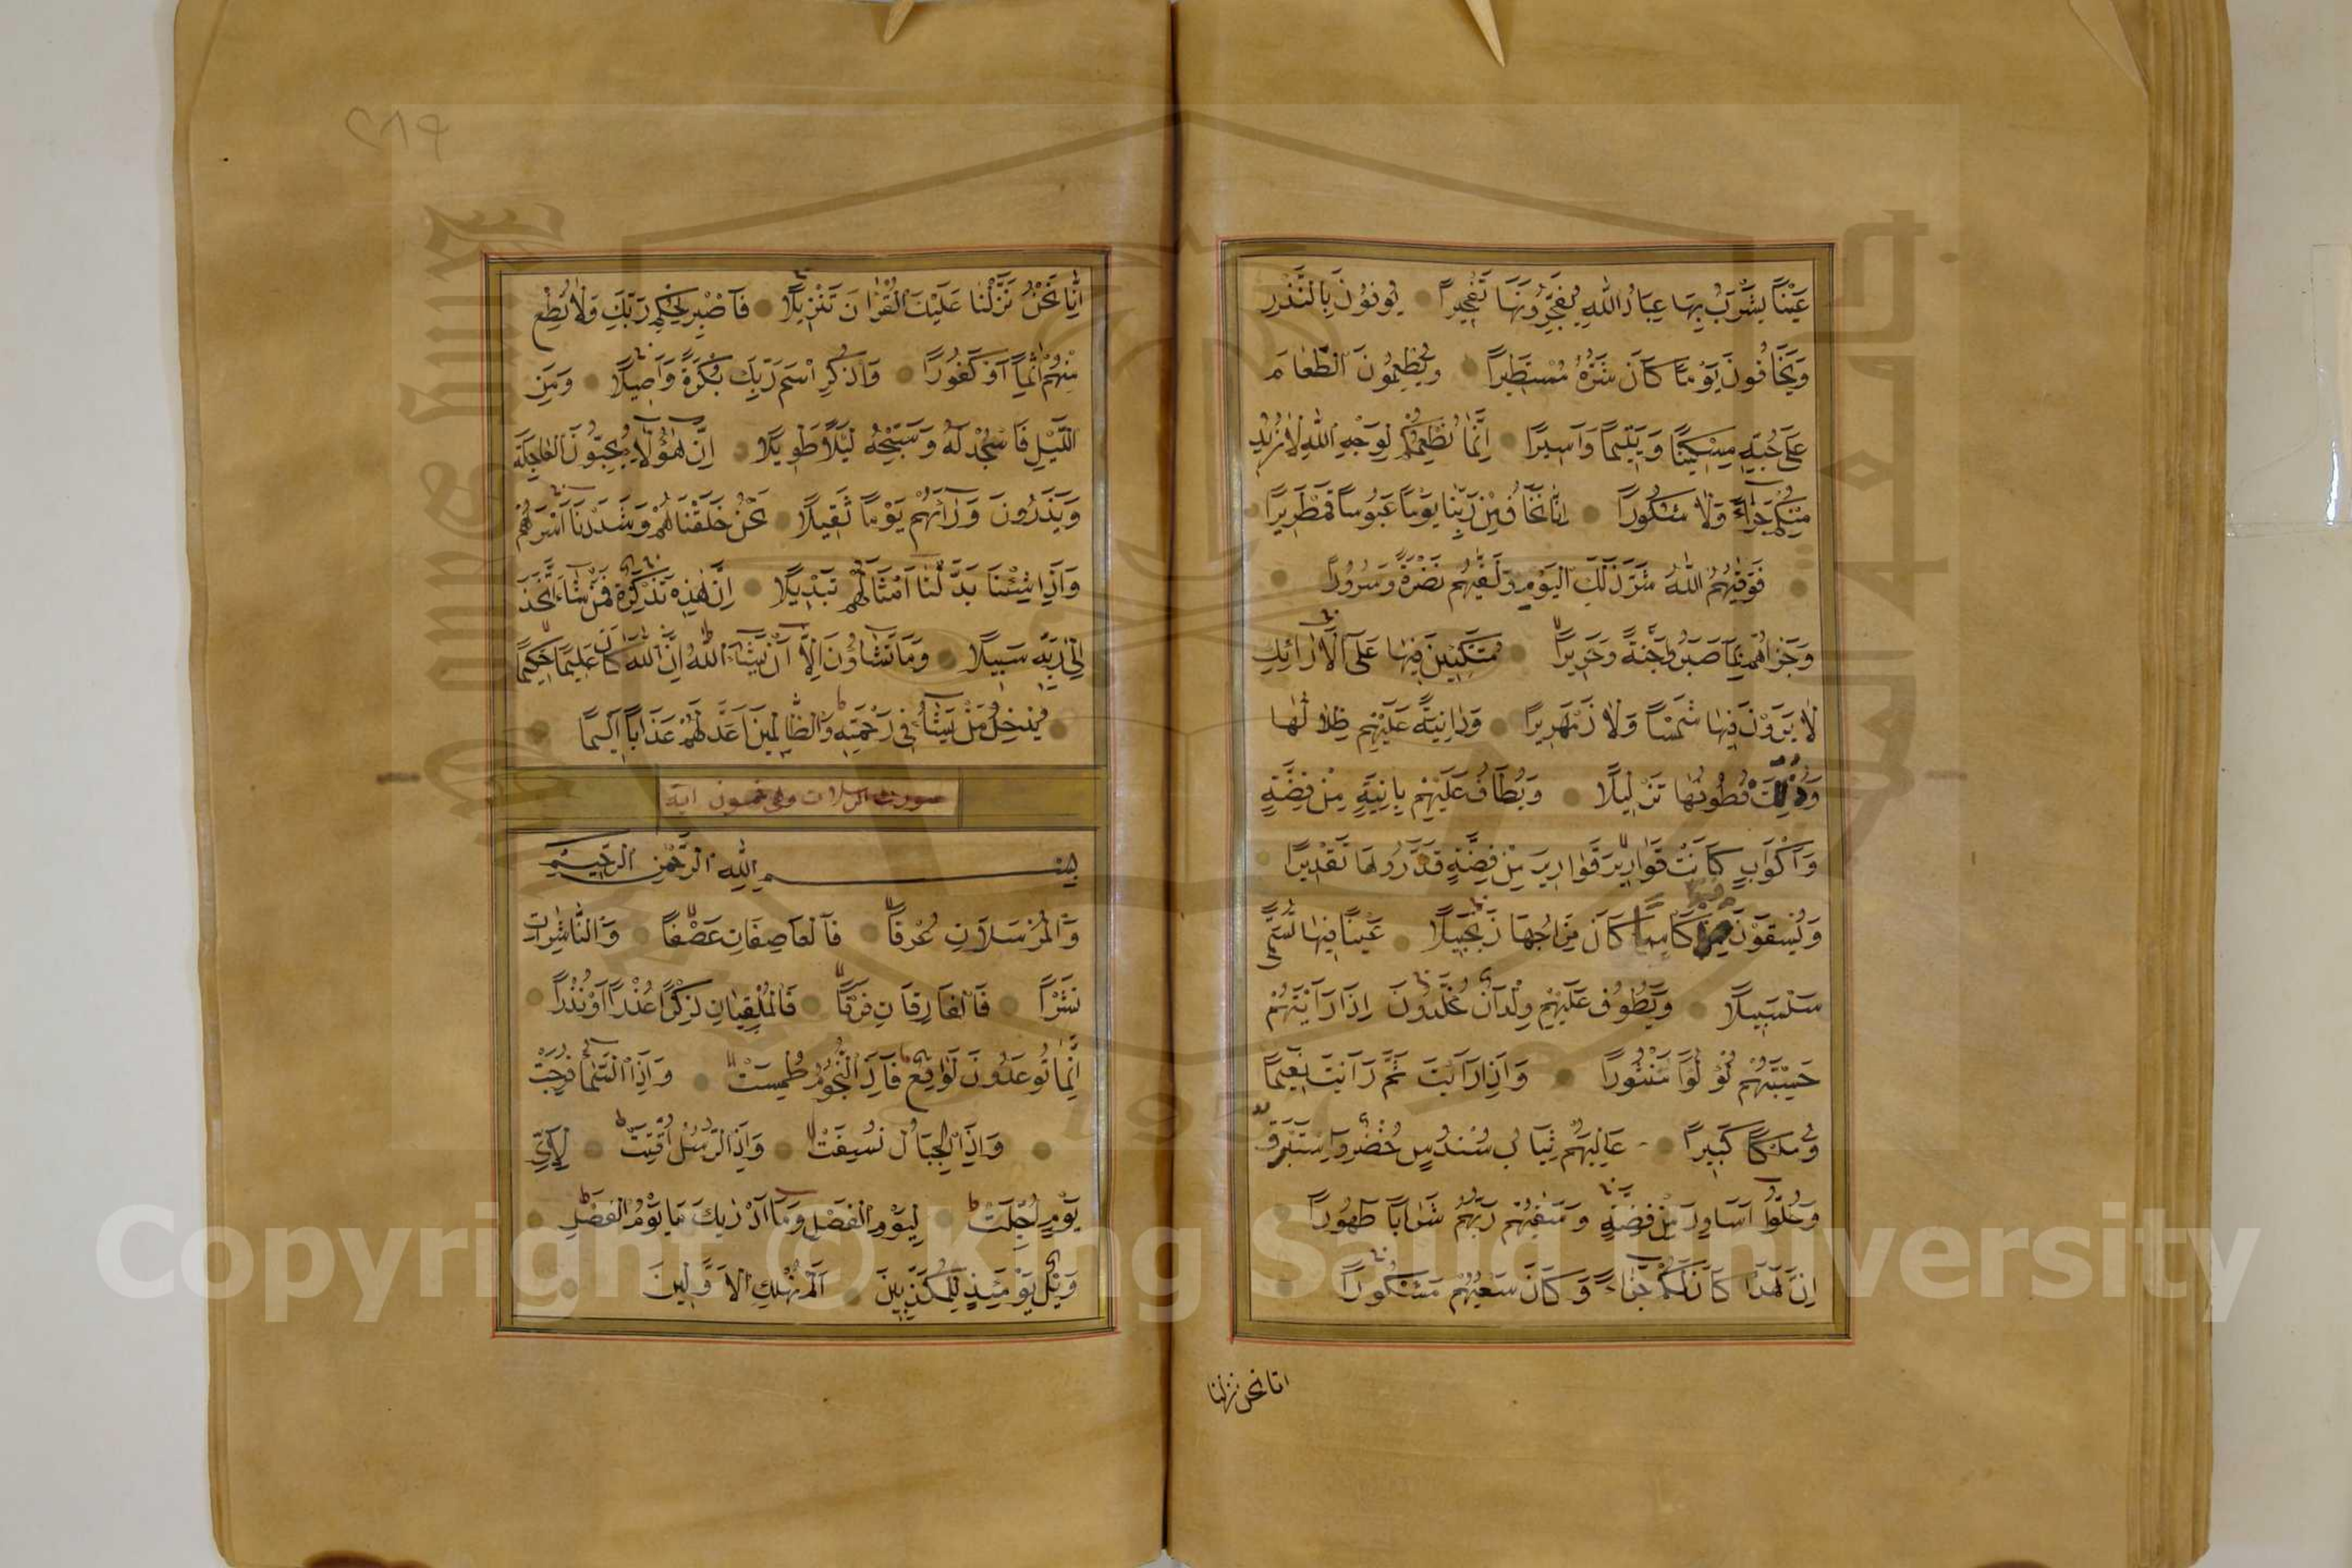 عَيْنًا يَشْرَبُ بِهَا عِبَادُ اللّٰهِ يُفَجِّرُونَهَا تَفْجِيرًا يُوفُونَ بِالنَّذْرِ
وَيَخَافُونَ يَوْمًا كَانَ شَرُّهُ مُسْتَطِيرًا وَيُطْعِمُونَ الطَّعَامَ
عَلَى حُبِّهِ مِسْكِينًا وَيَتِيمًا وَاَسِيرًا اِنَّمَا نُطْعِمُكُمْ لِوَجْهِ اللّٰهِ لَا نُرِيدُ
مِنْكُمْ جَزَاءً وَلَا شُكُورًا اِنَّا نَخَافُ مِنْ رَبِّنَا يَوْمًا عَبُوسًا قَمْطَرِيرًا
فَوَقٰيهُمُ اللّٰهُ شَرَّ ذٰلِكَ الْيَوْمِ وَلَقّٰيهُمْ نَضْرَةً وَسُرُورًا
وَجَزَاهُمْ بِمَا صَبَرُوا جَنَّةً وَحَرِيرًا مُتَّكِئِينَ فِيهَا عَلَى الْاَرَائِكِ
لَا يَرَوْنَ فِيهَا شَمْسًا وَلَا زَمْهَرِيرًا وَدَانِيَةً عَلَيْهِمْ ظِلَالُهَا
وَذُلِّلَتْ قُطُوفُهَا تَذْلِيلًا وَيُطَافُ عَلَيْهِمْ بِاٰنِيَةٍ مِنْ فِضَّةٍ
وَاَكْوَابٍ كَانَتْ قَوَارِيرَ قَوَارِيرَ مِنْ فِضَّةٍ قَدَّرُوهَا تَقْدِيرًا
وَيُسْقَوْنَ فِيهَا كَاْسًا كَانَ مِزَاجُهَا زَنْجَبِيلًا عَيْنًا فِيهَا تُسَمّٰى
سَلْسَبِيلًا وَيَطُوفُ عَلَيْهِمْ وِلْدَانٌ مُخَلَّدُونَ اِذَا رَاَيْتَهُمْ
حَسِبْتَهُمْ لُؤْلُؤًا مَنْثُورًا وَاِذَا رَاَيْتَ ثَمَّ رَاَيْتَ نَعِيمًا
وَمُلْكًا كَبِيرًا عَالِيَهُمْ ثِيَابُ سُنْدُسٍ خُضْرٌ وَاِسْتَبْرَقٌ
وَحُلُّوا اَسَاوِرَ مِنْ فِضَّةٍ وَسَقٰيهُمْ رَبُّهُمْ شَرَابًا طَهُورًا
اِنَّ هٰذَا كَانَ لَكُمْ جَزَاءً وَكَانَ سَعْيُكُمْ مَشْكُورًا
انا نحن نزلنا
٢٨٩
اِنَّا نَحْنُ نَزَّلْنَا عَلَيْكَ الْقُرْاٰنَ تَنْزِيلًا فَاصْبِرْ لِحُكْمِ رَبِّكَ وَلَا تُطِعْ
مِنْهُمْ اٰثِمًا اَوْ كَفُورًا وَاذْكُرِ اسْمَ رَبِّكَ بُكْرَةً وَاَصِيلًا وَمِنَ
اللَّيْلِ فَاسْجُدْ لَهُ وَسَبِّحْهُ لَيْلًا طَوِيلًا اِنَّ هٰؤُلَاءِ يُحِبُّونَ الْعَاجِلَةَ
وَيَذَرُونَ وَرَاءَهُمْ يَوْمًا ثَقِيلًا نَحْنُ خَلَقْنَاهُمْ وَشَدَدْنَا اَسْرَهُمْ
وَاِذَا شِئْنَا بَدَّلْنَا اَمْثَالَهُمْ تَبْدِيلًا اِنَّ هٰذِهِ تَذْكِرَةٌ فَمَنْ شَاءَ اتَّخَذَ
اِلٰى رَبِّهِ سَبِيلًا وَمَا تَشَاؤُنَ اِلَّا اَنْ يَشَاءَ اللّٰهُ اِنَّ اللّٰهَ كَانَ عَلِيمًا حَكِيمًا
يُدْخِلُ مَنْ يَشَاءُ فِي رَحْمَتِهِ وَالظَّالِمِينَ اَعَدَّ لَهُمْ عَذَابًا اَلِيمًا
سورت المرسلات وهى خمسون اية
بِسْمِ اللّٰهِ الرَّحْمٰنِ الرَّحِيمِ
وَالْمُرْسَلَاتِ عُرْفًا فَالْعَاصِفَاتِ عَصْفًا وَالنَّاشِرَاتِ
نَشْرًا فَالْفَارِقَاتِ فَرْقًا فَالْمُلْقِيَاتِ ذِكْرًا عُذْرًا اَوْ نُذْرًا
اِنَّمَا تُوعَدُونَ لَوَاقِعٌ فَاِذَا النُّجُومُ طُمِسَتْ وَاِذَا السَّمَاءُ فُرِجَتْ
وَاِذَا الْجِبَالُ نُسِفَتْ وَاِذَا الرُّسُلُ اُقِّتَتْ لِاَيِّ
يَوْمٍ اُجِّلَتْ لِيَوْمِ الْفَصْلِ وَمَا اَدْرٰيكَ مَا يَوْمُ الْفَصْلِ
وَيْلٌ يَوْمَئِذٍ لِلْمُكَذِّبِينَ اَلَمْ نُهْلِكِ الْاَوَّلِينَ
Copyright © King Saud University
1957